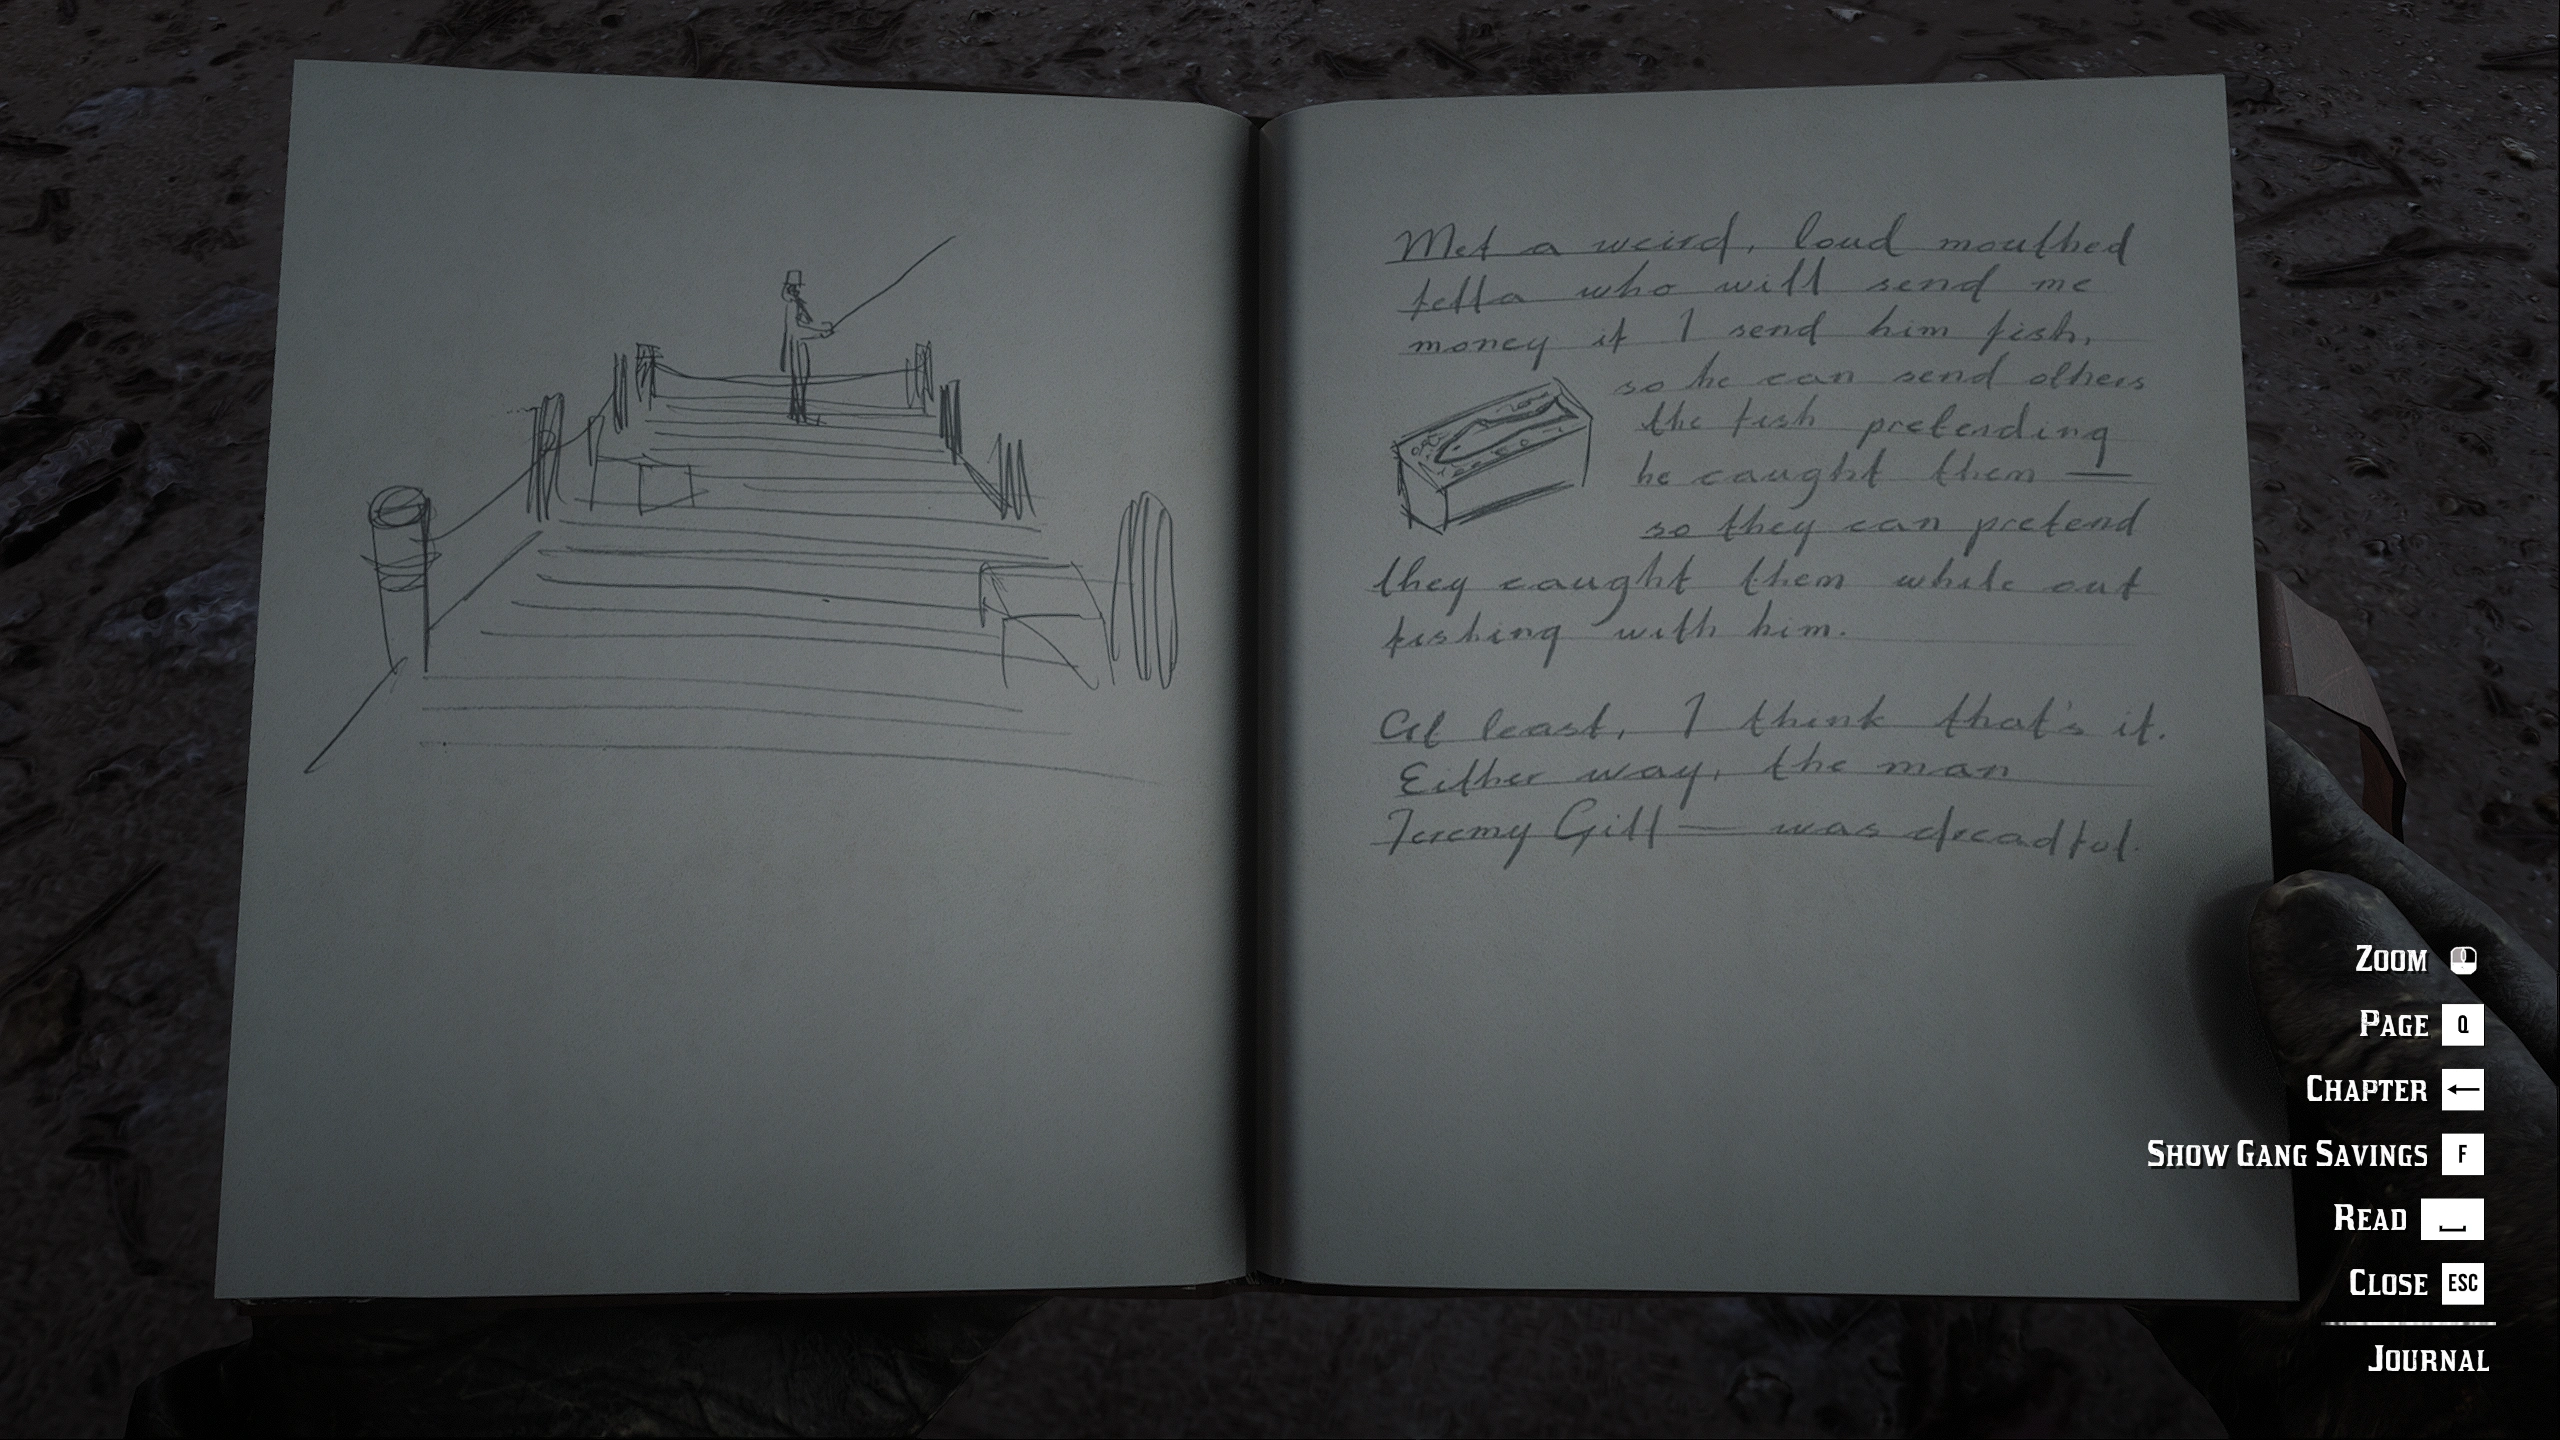 Met a weird, loud mouthed
fella who will send me
money if I send him fish,
so he can send others
the fish pretending
he caught them —
so they can pretend
they caught them while out
fishing with him.
At least, I think that's it.
Either way, the man
Jeremy Gill — was dreadful.
ZOOM
PAGE Q
CHAPTER ←
SHOW GANG SAVINGS F
READ
CLOSE ESC
JOURNAL